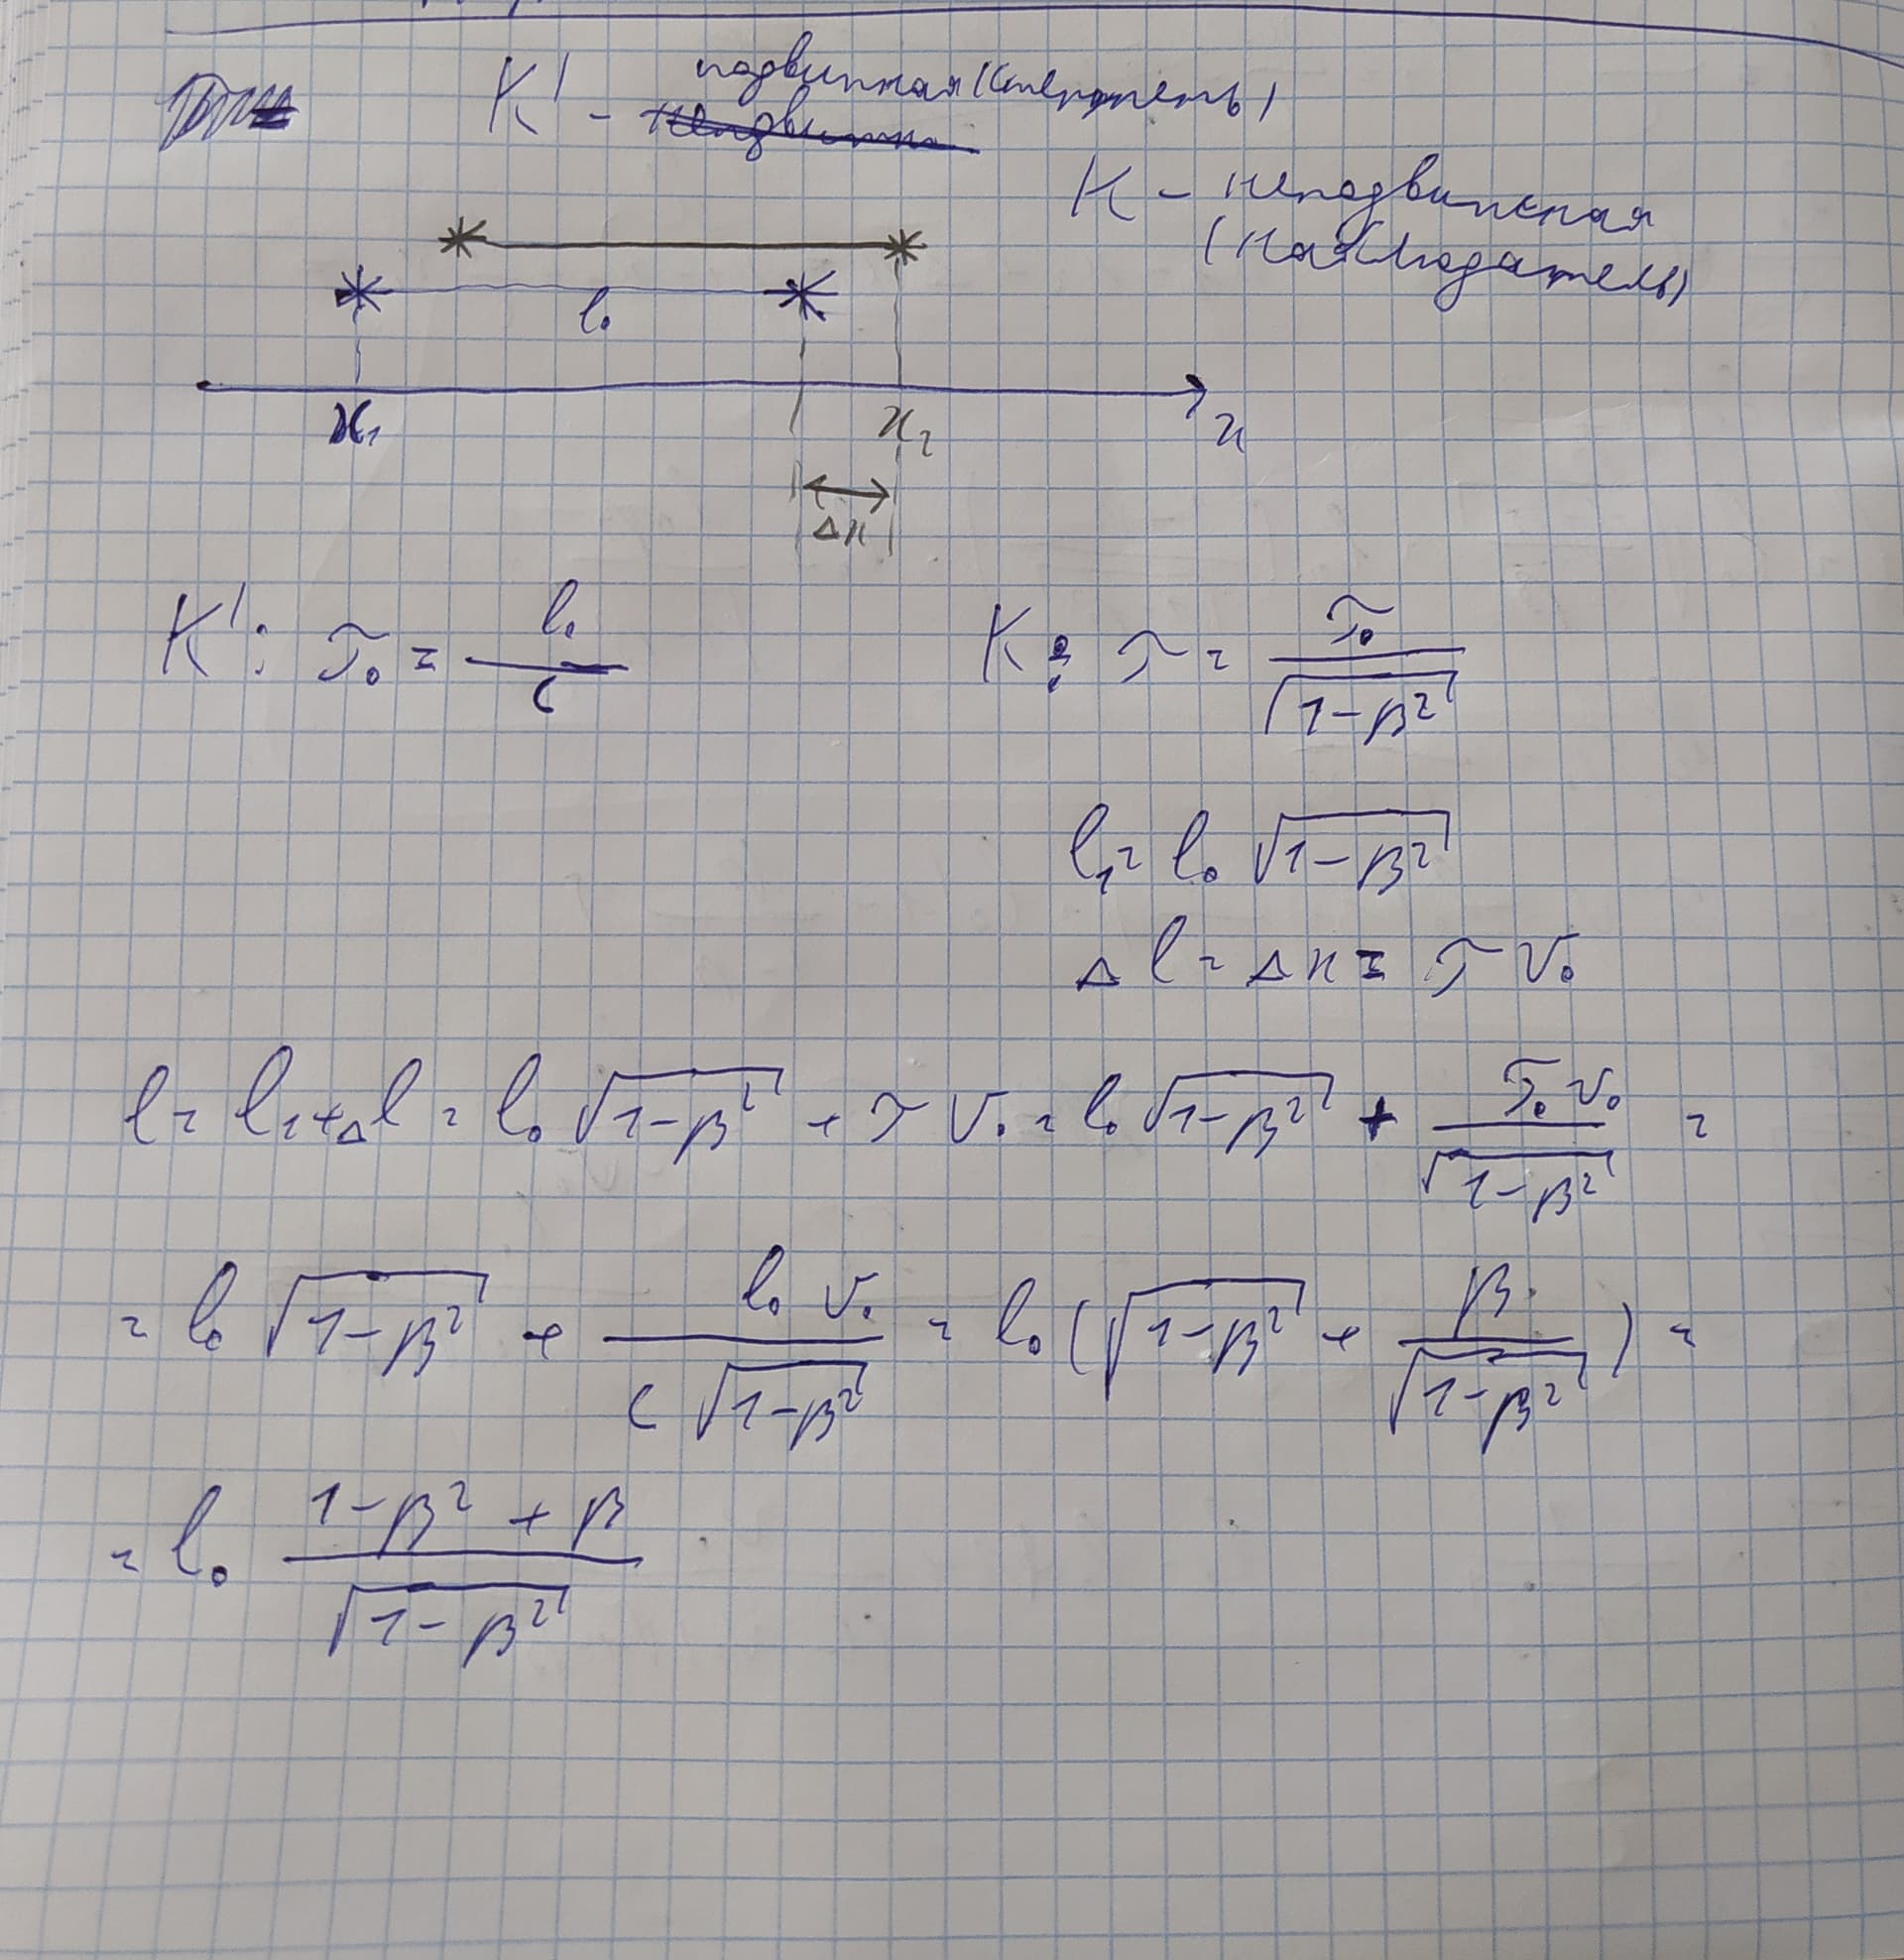 K' - подвижная (стержень)
K - неподвижная
(наблюдатель)
l₀
x₁ x₂ x
Δx
K': τ₀ = l₀/c K: τ = τ₀/√(1-β²)
l₁ = l₀ √(1-β²)
Δl = Δx = τ v₀
l = l₁ + Δl = l₀ √(1-β²) + τ v₀ = l₀ √(1-β²) + τ₀ v₀/√(1-β²) =
= l₀ √(1-β²) + l₀ v₀/(c √(1-β²)) = l₀ (√(1-β²) + β/√(1-β²)) =
= l₀ (1-β² + β)/√(1-β²)